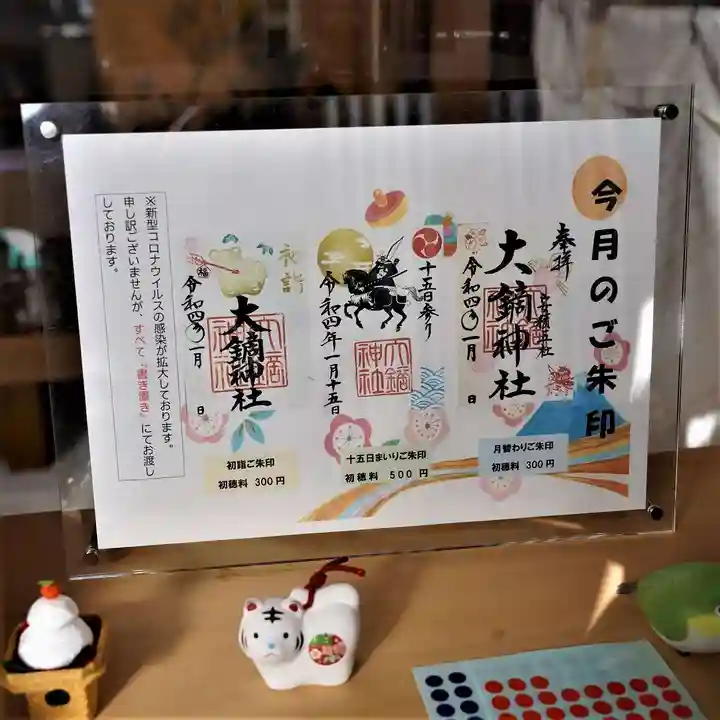 今月のご朱印
奉拝
安積國社
大鏑神社
令和四年一月 日
月替わりご朱印
初穂料 300円
十五日参り
令和四年一月十五日
大鏑
神社
十五日まいりご朱印
初穂料 500円
初詣
大鏑神社
令和四年一月 日
初詣ご朱印
初穂料 300円
※新型コロナウイルスの感染が拡大しております。
申し訳ございませんが、すべて『書き置き』にてお渡し
しております。